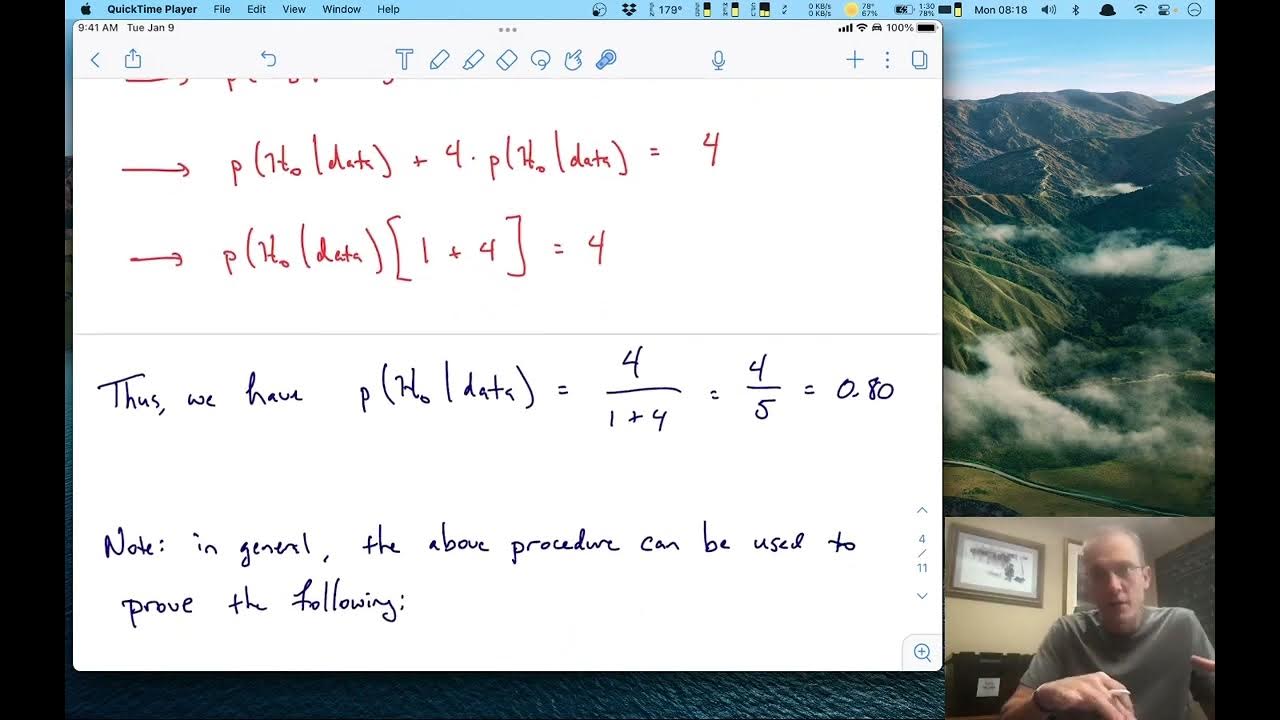 QuickTime Player File Edit View Window Help 179° 0 KB/s 0 KB/s 78° 67% 1:30 78% Mon 08:18
9:41 AM Tue Jan 9 100%
→ p(H₀|data) + 4 · p(H₀|data) = 4
→ p(H₀|data)[1 + 4] = 4
Thus, we have p(H₀|data) = 4/(1+4) = 4/5 = 0.80
Note: in general, the above procedure can be used to
prove the following:
4
/
11